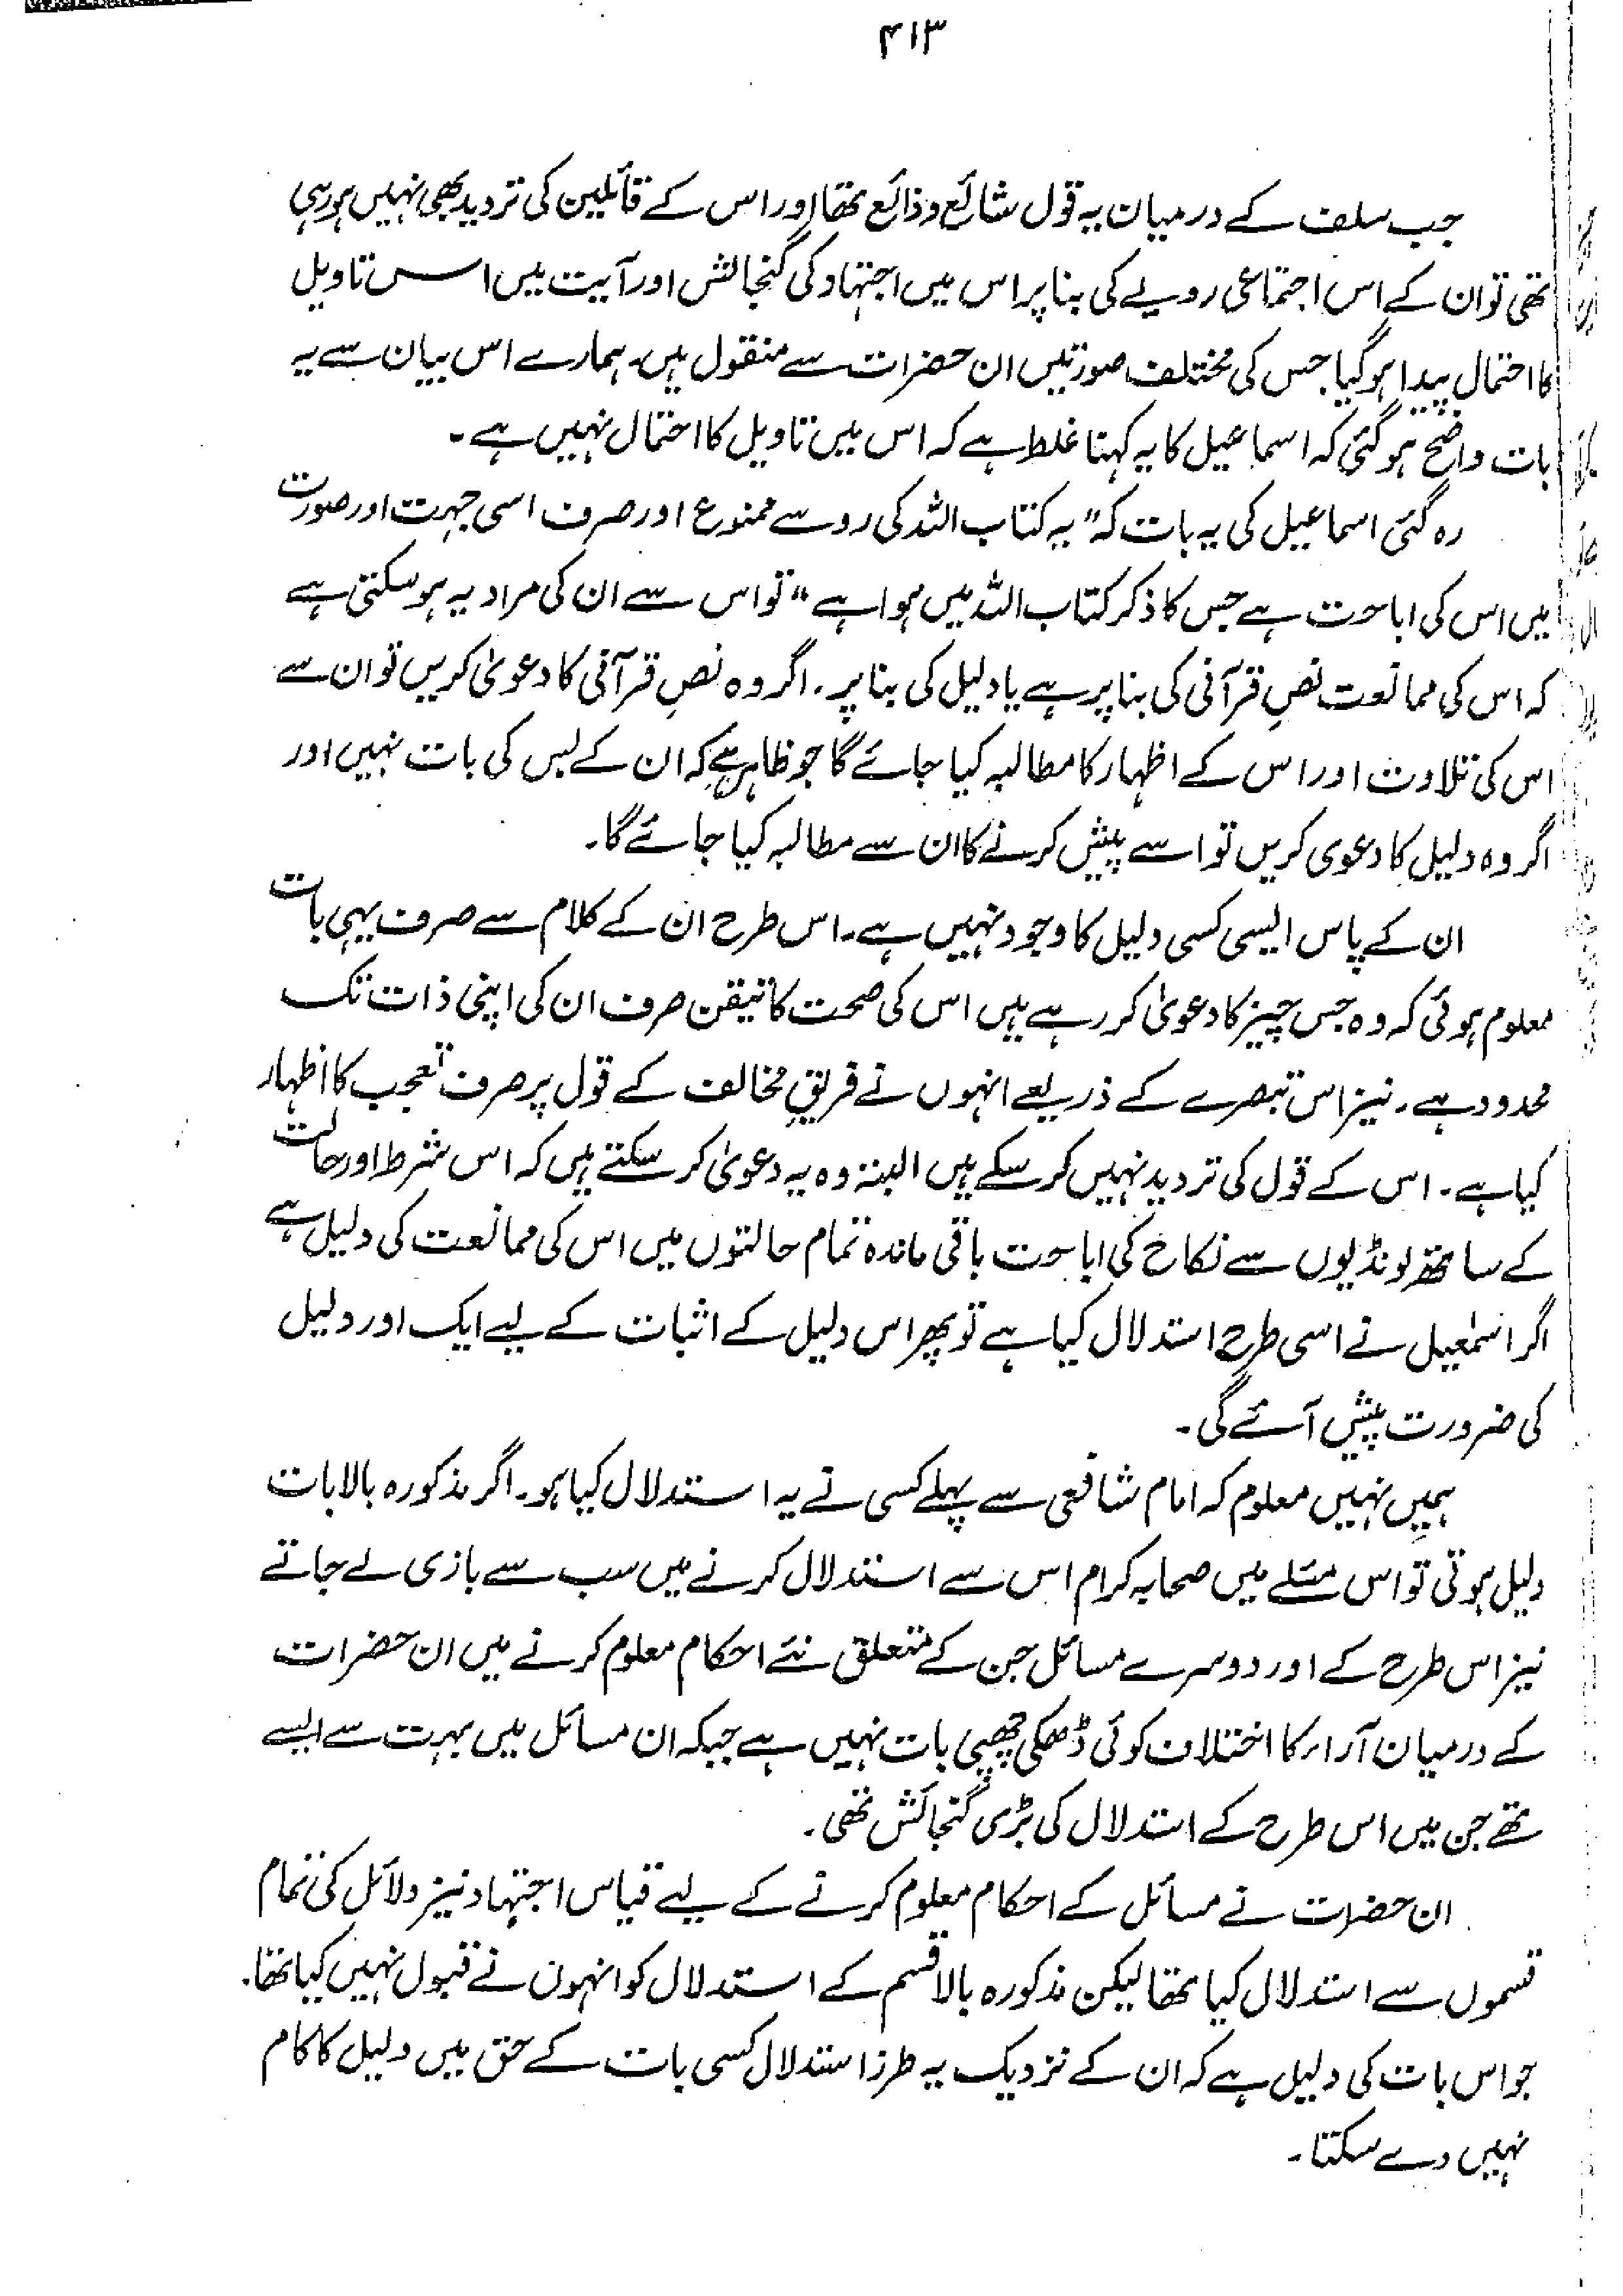 ۴۱۳
جب سلف کے درمیان یہ قول شائع و ذائع تھا اور اس کے قائلین کی تردید بھی نہیں ہو رہی
تھی تو ان کے اس اجتماعی رویے کی بنا پر اس میں اجتہاد کی گنجائش اور آیت میں اس تاویل
کا احتمال پیدا ہوگیا جس کی مختلف صورتیں ان حضرات سے منقول ہیں۔ ہمارے اس بیان سے یہ
بات واضح ہوگئی کہ اسماعیل کا یہ کہنا غلط ہے کہ اس میں تاویل کا احتمال نہیں ہے۔
رہ گئی اسماعیل کی یہ بات کہ "یہ کتاب اللہ کی رو سے ممنوع اور صرف اسی جہت اور صورت
میں اس کی اباحت ہے جس کا ذکر کتاب اللہ میں ہوا ہے" تو اس سے ان کی مراد یہ ہوسکتی ہے
کہ اس کی ممانعت نصِ قرآنی کی بنا پر ہے یا دلیل کی بنا پر۔ اگر وہ نصِ قرآنی کا دعویٰ کریں تو ان سے
اس کی تلاوت اور اس کے اظہار کا مطالبہ کیا جائے گا جو ظاہر ہے کہ ان کے بس کی بات نہیں اور
اگر وہ دلیل کا دعوی کریں تو اسے پیش کرنے کا ان سے مطالبہ کیا جائے گا۔
ان کے پاس ایسی کسی دلیل کا وجود نہیں ہے۔ اس طرح ان کے کلام سے صرف یہی بات
معلوم ہوئی کہ وہ جس چیز کا دعویٰ کر رہے ہیں اس کی صحت کا تیقن صرف ان کی اپنی ذات تک
محدود ہے۔ نیز اس تبصرے کے ذریعے انہوں نے فریقِ مخالف کے قول پر صرف تعجب کا اظہار
کیا ہے۔ اس کے قول کی تردید نہیں کرسکے ہیں البتہ وہ یہ دعویٰ کرسکتے ہیں کہ اس شرط اور حالت
کے ساتھ لونڈیوں سے نکاح کی اباحت باقی ماندہ تمام حالتوں میں اس کی ممانعت کی دلیل ہے
اگر اسمٰعیل نے اسی طرح استدلال کیا ہے تو پھر اس دلیل کے اثبات کے لیے ایک اور دلیل
کی ضرورت پیش آئے گی۔
ہمیں نہیں معلوم کہ امام شافعی سے پہلے کسی نے یہ استدلال کیا ہو۔ اگر مذکورہ بالا بات
دلیل ہوتی تو اس مسئلے میں صحابہ کرام اس سے استدلال کرنے میں سب سے بازی لے جاتے
نیز اس طرح کے اور دوسرے مسائل جن کے متعلق نئے احکام معلوم کرنے میں ان حضرات
کے درمیان آراء کا اختلاف کوئی ڈھکی چھپی بات نہیں ہے جبکہ ان مسائل میں بہت سے ایسے
تھے جن میں اس طرح کے استدلال کی بڑی گنجائش تھی۔
ان حضرات نے مسائل کے احکام معلوم کرنے کے لیے قیاس اجتہاد نیز دلائل کی تمام
قسموں سے استدلال کیا تھا لیکن مذکورہ بالا قسم کے استدلال کو انہوں نے قبول نہیں کیا تھا۔
جو اس بات کی دلیل ہے کہ ان کے نزدیک یہ طرز استدلال کسی بات کے حق میں دلیل کا کام
نہیں دے سکتا۔